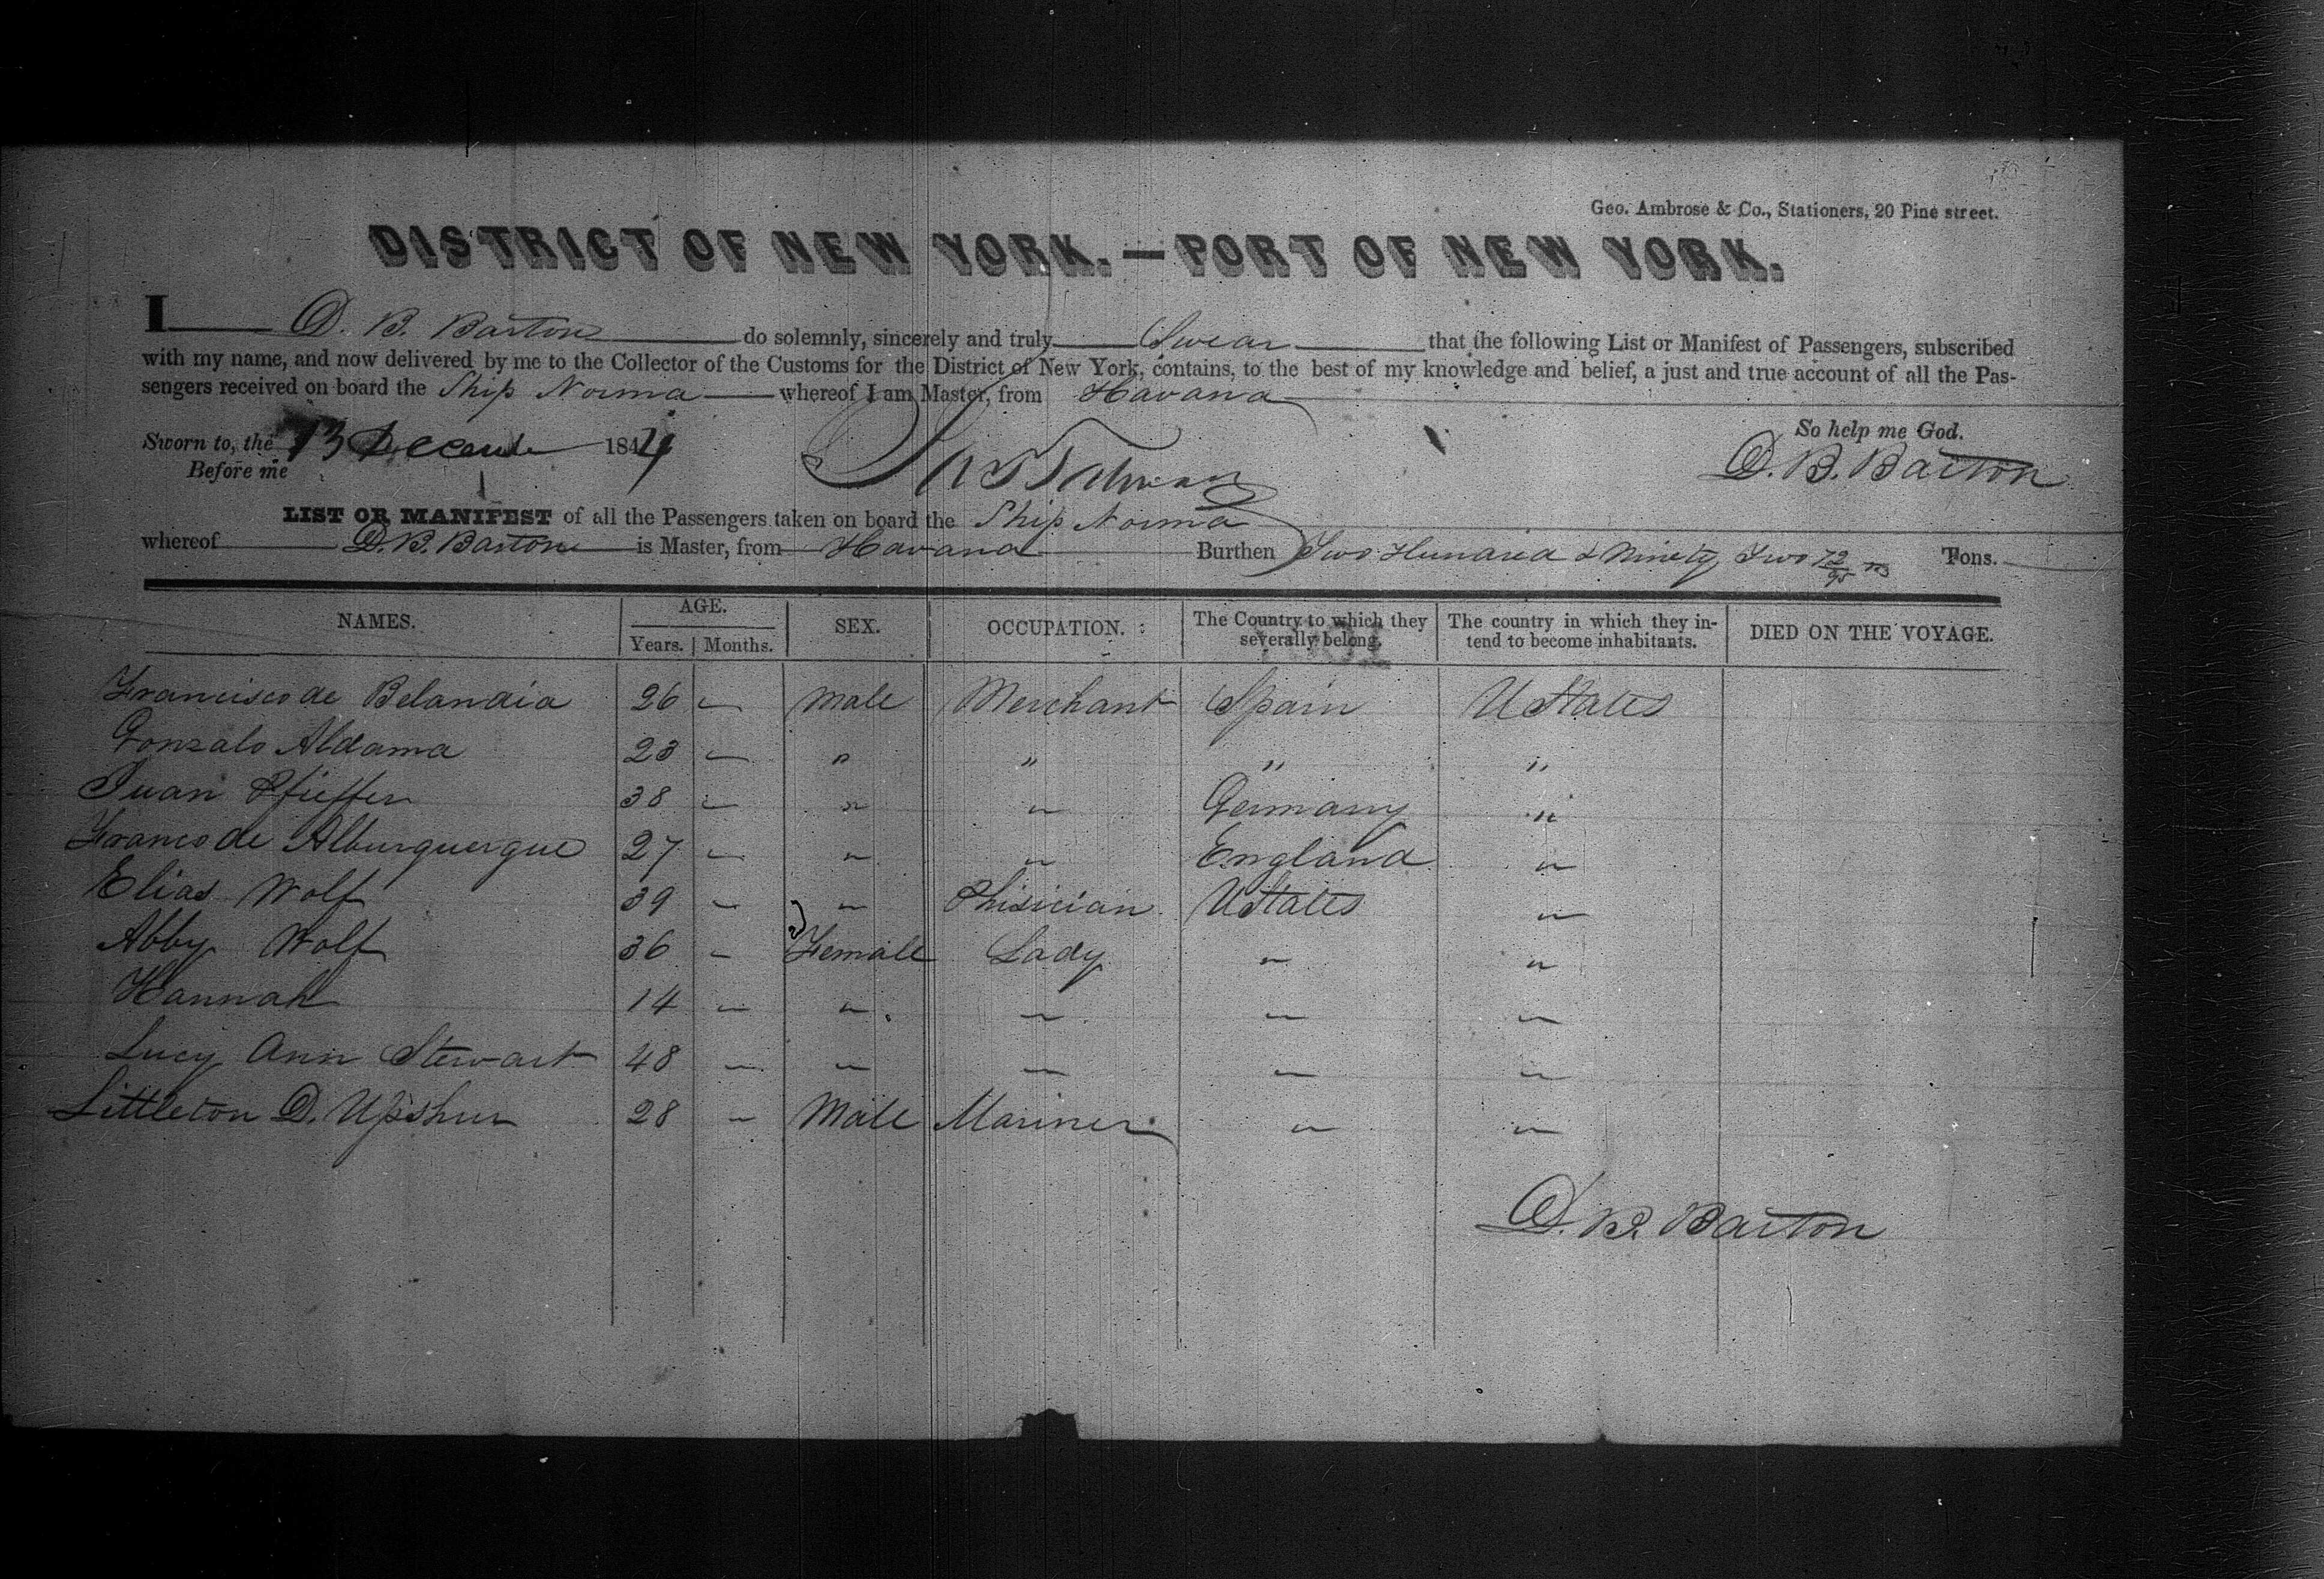 Geo. Ambrose & Co., Stationers, 20 Pine street.
DISTRICT OF NEW YORK.—PORT OF NEW YORK.
I D. B. Barton do solemnly, sincerely and truly Swear that the following List or Manifest of Passengers, subscribed
with my name, and now delivered by me to the Collector of the Customs for the District of New York, contains, to the best of my knowledge and belief, a just and true account of all the Pas-
sengers received on board the Ship Norma whereof I am Master, from Havana
So help me God.
Sworn to, the 13 December 1844
D. B. Barton
Before me
LIST OR MANIFEST of all the Passengers taken on board the Ship Norma
whereof D. B. Barton is Master, from Havana Burthen Two Hundred & Ninety Two 72/95 Tons.
NAMES. AGE. SEX. OCCUPATION. The Country to which they severally belong. The country in which they in- tend to become inhabitants. DIED ON THE VOYAGE.
Years. Months.
Francisco de Belandia 26 — Male Merchant Spain UStates
Gonzalo Aldama 23 — " " " "
Juan Pfieffer 38 — " " Germany "
Franco de Alburquerque 27 — " " England "
Elias Wolf 39 — " Phisician UStates "
Abby Wolf 36 — Female Lady " "
Hannah 14 — " " " "
Lucy Ann Stewart 48 — " " " "
Littleton D. Upshur 28 — Male Mariner " "
D. B. Barton